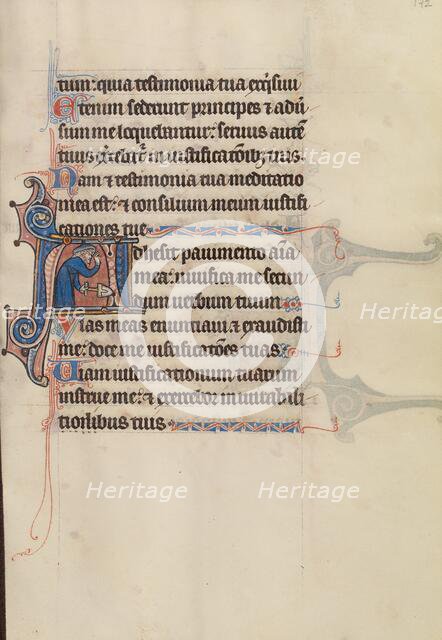 172
tum: quia testimonia tua exq̄sivi
Etenim sederunt principes & adū
sum me loquebantur: servus autē
tuus ex̄cebat̄ in iustificatōib; tuis.
Nam & testimonia tua meditatio
mea est: & consilium meum iustifi
cationes tue
Adhesit pavimento aīa
mea: vivifica me secun
dum verbum tuum
Vias meas enuntiavi & exaudisti
me: doce me iustificatōes tuas
Viam iustificationum tuarum
instrue me: & exercebor in mirabili
tuis
Heritage Heritage Heritage
Heritage Heritage Heritage
Heritage Heritage